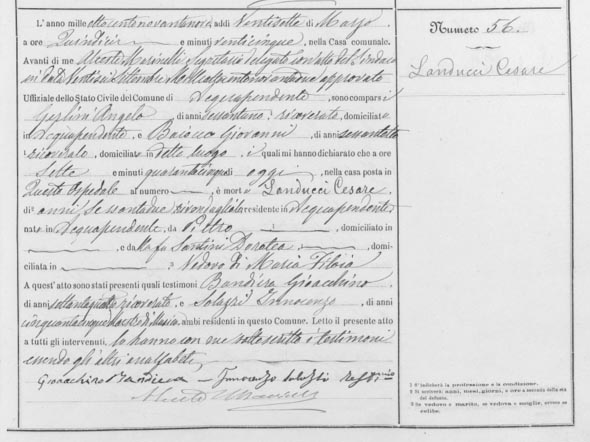 L'anno mille ottocentonovantanove, addì Ventisette di Marzo
a ore Quindici e minuti venticinque, nella Casa comunale.
Avanti di me Alceste Marinelli Segretario delegato con atto del Sindaco
in data Ventisei Settembre Milleottocentonovantadue approvato
Uffiziale dello Stato Civile del Comune di Acquapendente, sono comparsi
Gerlini Angelo, di anni sessantuno, ricoverato domiciliato
in Acquapendente, e Baiocco Giovanni, di anni sessantotto
ricoverato, domiciliato in detto luogo, i quali mi hanno dichiarato che a ore
sette e minuti quarantacinque di oggi, nella casa posta in
Questo Ospedale al numero, è morto Landucci Cesare
di anni sessantadue, residente in Acquapendente
nato in Acquapendente, da Pietro, domiciliato in
, e da fu Santini Dorotea, domi-
ciliata in Vedovo di Maria
A quest'atto sono stati presenti quali testimoni Bandiera Gioacchino
di anni ricoverato, e Solazzi Innocenzo, di anni
cinquantacinque, ambi residenti in questo Comune. Letto il presente atto
a tutti gli intervenuti, lo hanno con me sottoscritto i testimoni
essendo gli altri analfabeti
Gioacchino Bandiera — Innocenzo Solazzi Testimonio
Alceste Marinelli
Numero 56.
Landucci Cesare
1 S'indicherà la professione o la condizione.
2 Si scriverà: anni, mesi, giorni, o ore a seconda della età
del defunto.
3 Se vedovo o marito, se vedova o moglie, ovvero se
celibe.